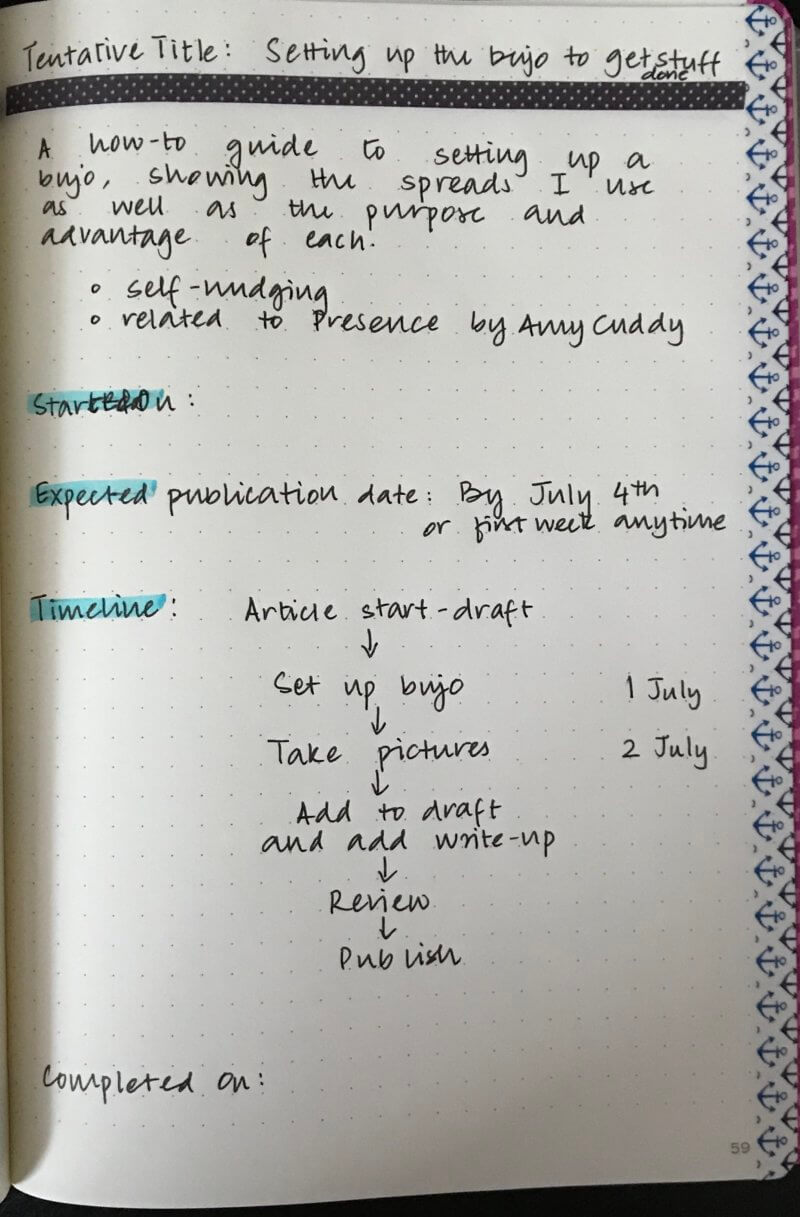 Tentative Title: Setting up the bujo to get stuff
done
A how-to guide to setting up a
bujo, showing the spreads I use
as well as the purpose and
advantage of each.
self-nudging
related to Presence by Amy Cuddy
Started On:
Expected publication date: By July 4th
or first week anytime
Timeline: Article start-draft
↓
Set up bujo 1 July
↓
Take pictures 2 July
↓
Add to draft
and add write-up
↓
Review
↓
Publish
Completed On:
59